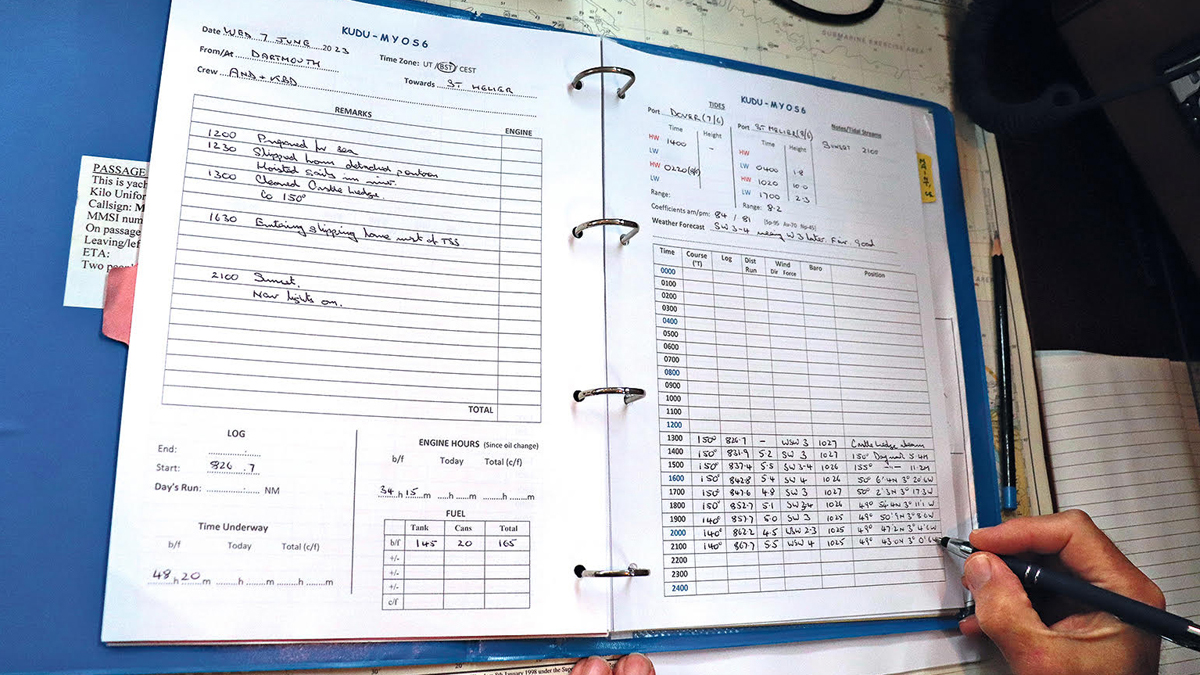 SUBMARINE EXERCISE AREA
KUDU - MYOS6
Date WED 7 JUNE 2023
Time Zone: UT / BST / CEST
From/At DARTMOUTH
Towards ST HELIER
Crew AND + KBD
REMARKS ENGINE
1200 Prepared for sea
1230 Slipped from detached pontoon
Hoisted sails in river.
1300 Cleared Castle Ledge.
Co 150°
1630 Entering shipping lane west of TSS
2100 Sunset.
Nav lights on.
TOTAL
LOG
End:
Start: 826.7
Day's Run: NM
Time Underway
b/f Today Total (c/f)
48 h 20 m h m h m
ENGINE HOURS (Since oil change)
b/f Today Total (c/f)
34 h 15 m h m h m
FUEL
Tank Cans Total
b/f 145 20 165
+/-
+/-
+/-
c/f
PASSAGE
This is yach
Kilo Unifor
Callsign: M
MMSI num
On passage
Leaving/lef
ETA:
Two peop
KUDU - MYOS6
TIDES
Port DOVER (7/6)
Time Height
HW 1400 -
LW
HW 0220 (8/6)
LW
Range:
Port ST HELIER (8/6)
Time Height
HW
LW 0400 1.8
HW 1020 10.0
LW 1700 2.3
Range: 8.2
Notes/Tidal Streams
SUNSET 2100
Coefficients am/pm: 84 / 81 [Sp-95 Av-70 Np-45]
Weather Forecast SW 3-4 veering W 3 later. Fair. Good
Time Course (°T) Log Dist Run Wind Dir Force Baro Position
0000
0100
0200
0300
0400
0500
0600
0700
0800
0900
1000
1100
1200
1300 150° 826.7 - WSW 3 1027 Castle Ledge abeam
1400 150° 831.9 5.2 SW 3 1027 150° Daymark 5.4M
1500 150° 837.4 5.5 SW 3-4 1026 155° -- 11.2M
1600 150° 842.8 5.4 SW 4 1026 50° 6'.4N 3° 20'.6W
1700 150° 847.6 4.8 SW 3 1027 50° 2'.3N 3° 17'.3W
1800 150° 852.7 5.1 SW 3-4 1026 49° 54'.4N 3° 11'.1W
1900 140° 857.7 5.0 SW 3 1025 49° 50'.9N 3° 8'.6W
2000 140° 862.2 4.5 WSW 2-3 1025 49° 47'.2N 3° 4'.6W
2100 140° 867.7 5.5 WSW 4 1025 49° 43'.0N 3° 0'.6W
2200
2300
2400
January 1998 under the Supe